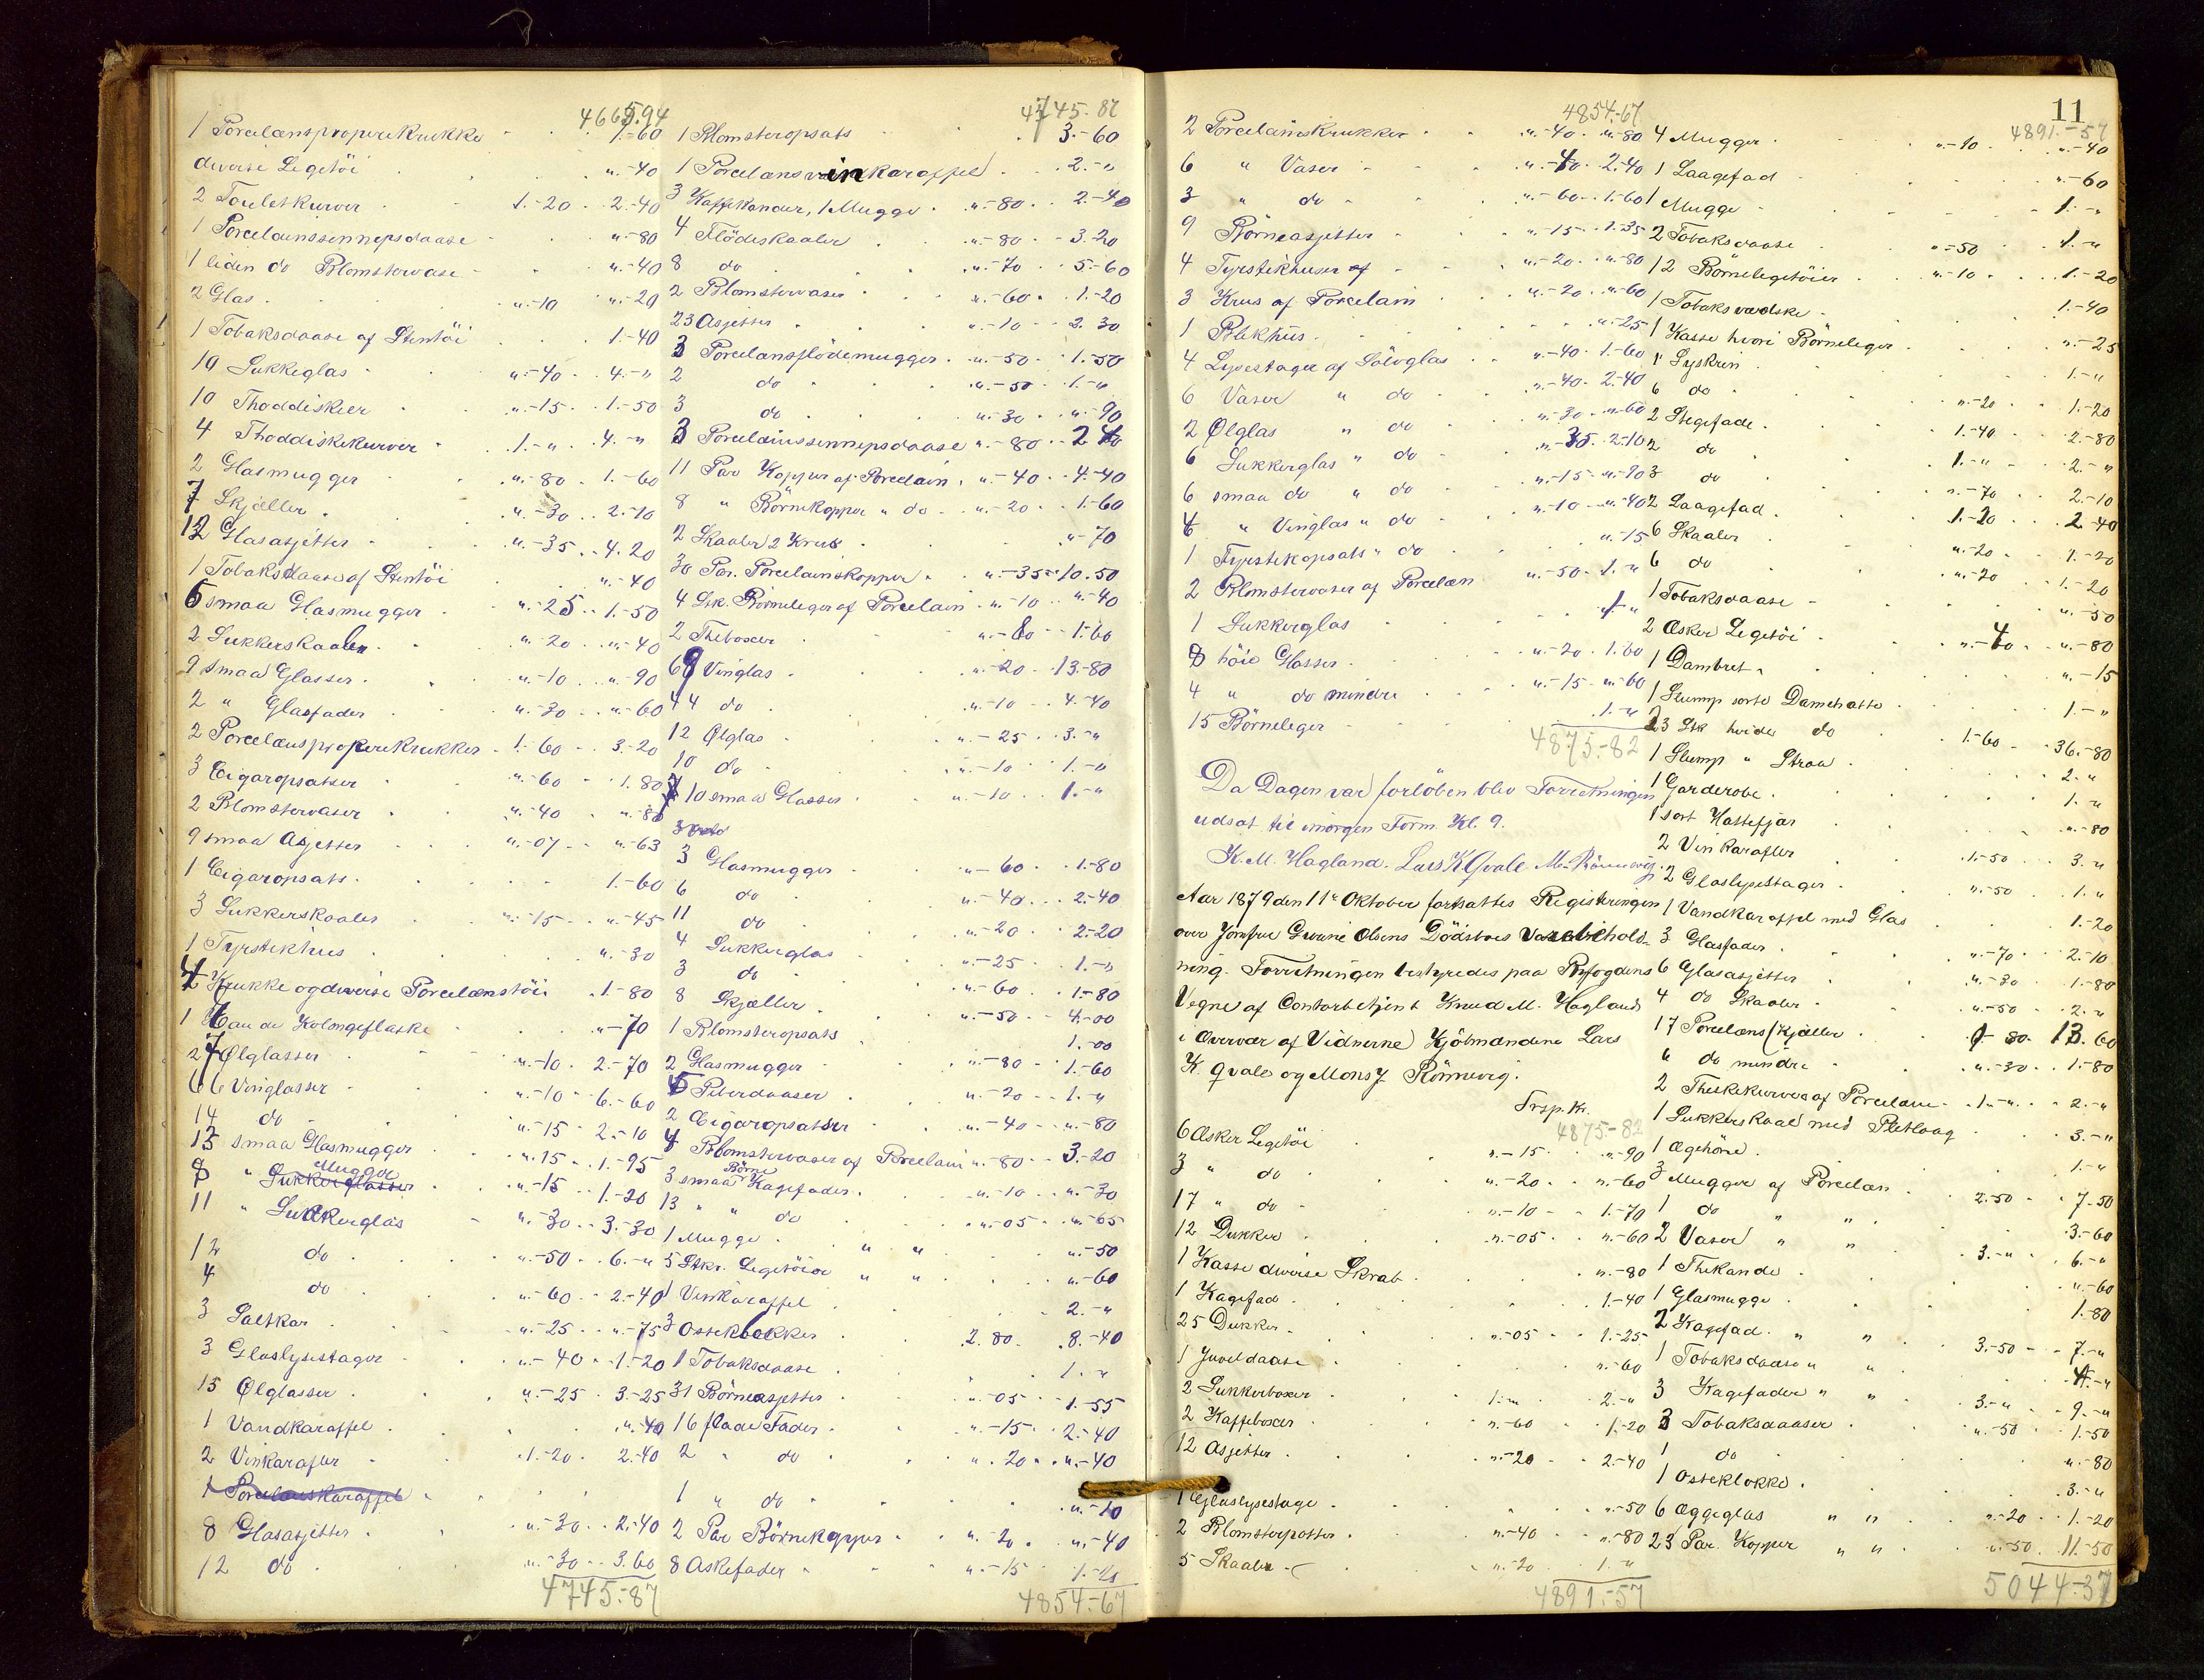 4665.94
1 Porcelænspropenkrukke 1.-60
diverse Legetöi ".-40
2 Touletkurver 1.-20 2.-40
1 Porcelainssennepsdaase ".-80
1 liden do Blomstervase ".-40
2 Glas ".-10 ".-20
1 Tobaksdaase af Stentöi 1.-40
10 Sukkeglas ".-40 4.-"
10 Thoddiskeer ".-15 1.-50
4 Thoddiskekurver 1.-" 4.-"
2 Glasmugger ".-80 1.-60
7 Skjæller ".-30 2.-10
12 Glasasjetter ".-35 4.20
1 Tobaksdaase af Stentöi ".-40
6 smaa Glasmugger ".-25 1.-50
2 Sukkerskaaler ".-20 ".-40
9 smaa Glasser ".-10 ".-90
2 " Glasfader ".-30 ".-60
2 Porcelænspropenkrukker 1.-60 3.-20
3 Cigaropsatser ".-60 1.80
2 Blomstervaser ".-40 ".-80
9 smaa Asjetter ".-07 ".-63
1 Cigaropsats 1.-60
3 Sukkerskaaler ".-15 ".-45
1 Fyrstikhus ".-30
1 Krukke og diverse Porcelænstöi 1.-80
1 Eau de Kolongeflaske "-70
27 Ølglasser ".-10 2.-70
66 Vinglasser ".-10 6.-60
14 do ".-15 2.-10
13 smaa Glasmugger ".15 1.-95
8 " Mugger ".-15 1.-20
11 " Sukkerglas ".-30 3.-30
12 do ".-50 6.-"
4 do ".-60 2.-40
3 Saltkar ".-25 ".-75
3 Glaslysestager ".-40 1.-20
13 Ølglasser ".-25 3.-25
1 Vandkaraffel ".40
2 Vinkarafler 1.-20 2.40
1 Porcelænskaraffel
8 Glasasjetter ".-30 2.-40
12 do ".-30 3.60
4745.-87
4745.87
1 Blomsteropsats 3.-60
1 Porcelænsvinkaraffel 2.-"
3 Kaffekander, 1 Mugge ".-80 2.-40
4 Flödeskaaler ".-80 3.20
8 do ".-70 5.-60
2 Blomstervaser ".-60 1.-20
23 Asjetter ".-10 2.30
3 Porcelænsflödemugger ".-50 1.-50
2 do ".-50 1.-"
3 do ".-30 ".-90
3 Porcelainssennepsdaase ".-80 2.40
11 Par Kopper af Porcelain ".-40 4.-40
8 " Börnekopper " do ".-20 1.-60
2 Skaaler 2 Krus "-70
30 Par. Porcelainskopper ".-35 10.50
4 Stk. Börneleger af Porcelain ".-10 ".-40
2 Theboxer ".-80 1.60
69 Vinglas ".-20 13.-80
44 do ".-10 4.-40
12 Ølglas ".-25 3.-"
10 do ".-10 1.-"
10 smaa Glasser ".-10 1.-"
3 Glasmugger ".-60 1.-80
6 do ".-40 2.-40
11 do ".-20 2.-20
4 Sukkerglas ".-25 1.-"
3 do ".-60 1.-80
8 Skjæller ".-50 4.-00
1 Blomsteropsats 1.-00
2 Glasmugger ".-80 1.-60
5 Peberdaaser ".-20 1.-"
2 Cigaropsatser ".-40 ".-80
4 Blomstervaser af Porcelain ".-80 3.-20
3 smaa Börne Kagefader ".-10 ".-30
13 " " do ".-05 ".-65
1 Mugge " " ".-50
5 Stkr. Legetöier " " ".-60
1 Vinkaraffel 2.-"
3 Osteklokker 2.80 8.-40
1 Tobaksdaase 1.-"
31 Börneasjetter ".-05 1.-55
16 flade Fader ".-15 2.-40
2 " do ".20 ".-40
1 " do ".-10
2 Par Börnekopper ".-20 ".-40
8 Askefader ".-15 1.-20
4854.-67
11
4854.67
2 Porcelainskrukker ".-40 ".-80
6 " Vaser ".-40 2.-40
3 " do ".-60 1.-60
9 Börneasjetter ".-15 1.35
4 Fyrstikhuser af ".-20 ".-80
3 Krus af Porcelain ".-20 ".-60
1 Blekhus ".-25
4 Lysestager af Sölvglas ".-40 1.-60
6 Vaser " do ".-40 2.40
2 Ølglas " do ".-30 ".-60
6 Sukkerglas " do ".-35 2.10
6 smaa do " do ".-15 ".-90
4 " Vinglas " do ".-10 ".-40
1 Fyrstikopsats " do ".-15
2 Blomstervaser af Porcelæn ".-50 1.-"
1 Sukkerglas 1-"
8 höie Glasser ".-20 1.60
4 " do mindre ".-15 ".-60
15 Börneleger 1.-"
4875.-82
Da Dagen var forlöben blev Forretningen
udsat til imorgen Form. Kl. 9.
K. M. Hagland. Lars K Qvale M. Rönnevig.
Aar 1879 den 11te Oktober fortsattes Registeringen
over Jomfru Gurine Olsens Dödsboes Varebehold-
ning. Forretningen bestyredes paa Byfogdens
Vegne af Contorbetjent Knud M. Hagland
i Overvær af Vidnerne Kjöbmændene Lars
K. Qvale og Mons J. Rönnevig.
Trsp. Kr.
4875-82
6 Æsker Legetöi ".-15 ".-90
3 " do ".-20 ".-60
17 " do ".-10 1.-70
12 Dukker ".-05 ".-60
1 Kasse diverse Skrab ".-80
1 Kagefad 1.-40
25 Dukker ".-05 1.-25
1 Juveldaase ".-60
2 Sukkerboxer 1.-" 2.-"
2 Kaffeboxer ".-60 1.-20
12 Asjetter ".-20 2.-40
1 Glaslysestage ".-50
2 Blomsterpotter ".-40 ".-80
5 Skaaler ".-20 1.-"
4891.-57
4891.-57
4 Mugger ".-10 ".-40
1 Laagefad ".-60
1 Mugge 1.-"
2 Tobaksdaase ".-50 1.-"
12 Börnelegetöier ".-10 1.-20
1 Tobaksvædske 1.-40
1 Kasse hvori Börneleger ".-25
1 Syskrin 1.-"
6 do ".-20 1.-20
2 Stegefade 1.-40 2.-80
2 do 1.-" 2.-"
3 do ".-70 2.-10
2 Laagefad 1.-20 2.-40
6 Skaaler ".-20 1.-20
6 do ".-20 1.-20
1 Tobaksdaase ".-50
2 Æsker Legetöi ".-40 ".-80
1 Dambret ".-15
1 Slump sorte Damehatte 1.-"
23 Stk hvide do 1.-60 36.-80
1 Slump " Straa 2."
1 Garderobe 1.-"
1 sort Hattefjær ".-80
2 Vinkarafler 1.-50 3.-"
2 Glaslysestager ".-50 1.-"
1 Vandkaraffel med Glas 1.-20
3 Glasfader ".-70 2.-10
6 Glasasjetter ".-30 1.-80
4 do Skaaler ".-50 2.-"
17 Porcelæns Skjæller ".-80 13.60
6 do mindre ".-30 1.-80
2 Theskekurver af Porcelain 1.-" 2.-"
1 Sukkerskaal med Pletlaag 3.-"
1 Ægehöne 1.-"
3 Mugger af Porcelæn 2.50 7.50
1 do " " 3.-60
2 Vaser " " 3.-" 6.-"
1 Thekande ".-60
1 Glasmugge 1.80
2 Kagefad " " 3.-50 7.-"
1 Tobaksdaase " " 1.-"
3 Kagefader " " 3.-" 9.-"
3 Tobaksdaaser ".-50 1.-50
1 do ".-80
1 Osteklokke 3.-"
6 Æggeglas " " ".-20 1.-20
23 Par. Kopper " " ".-50 11.-50
5044.-37